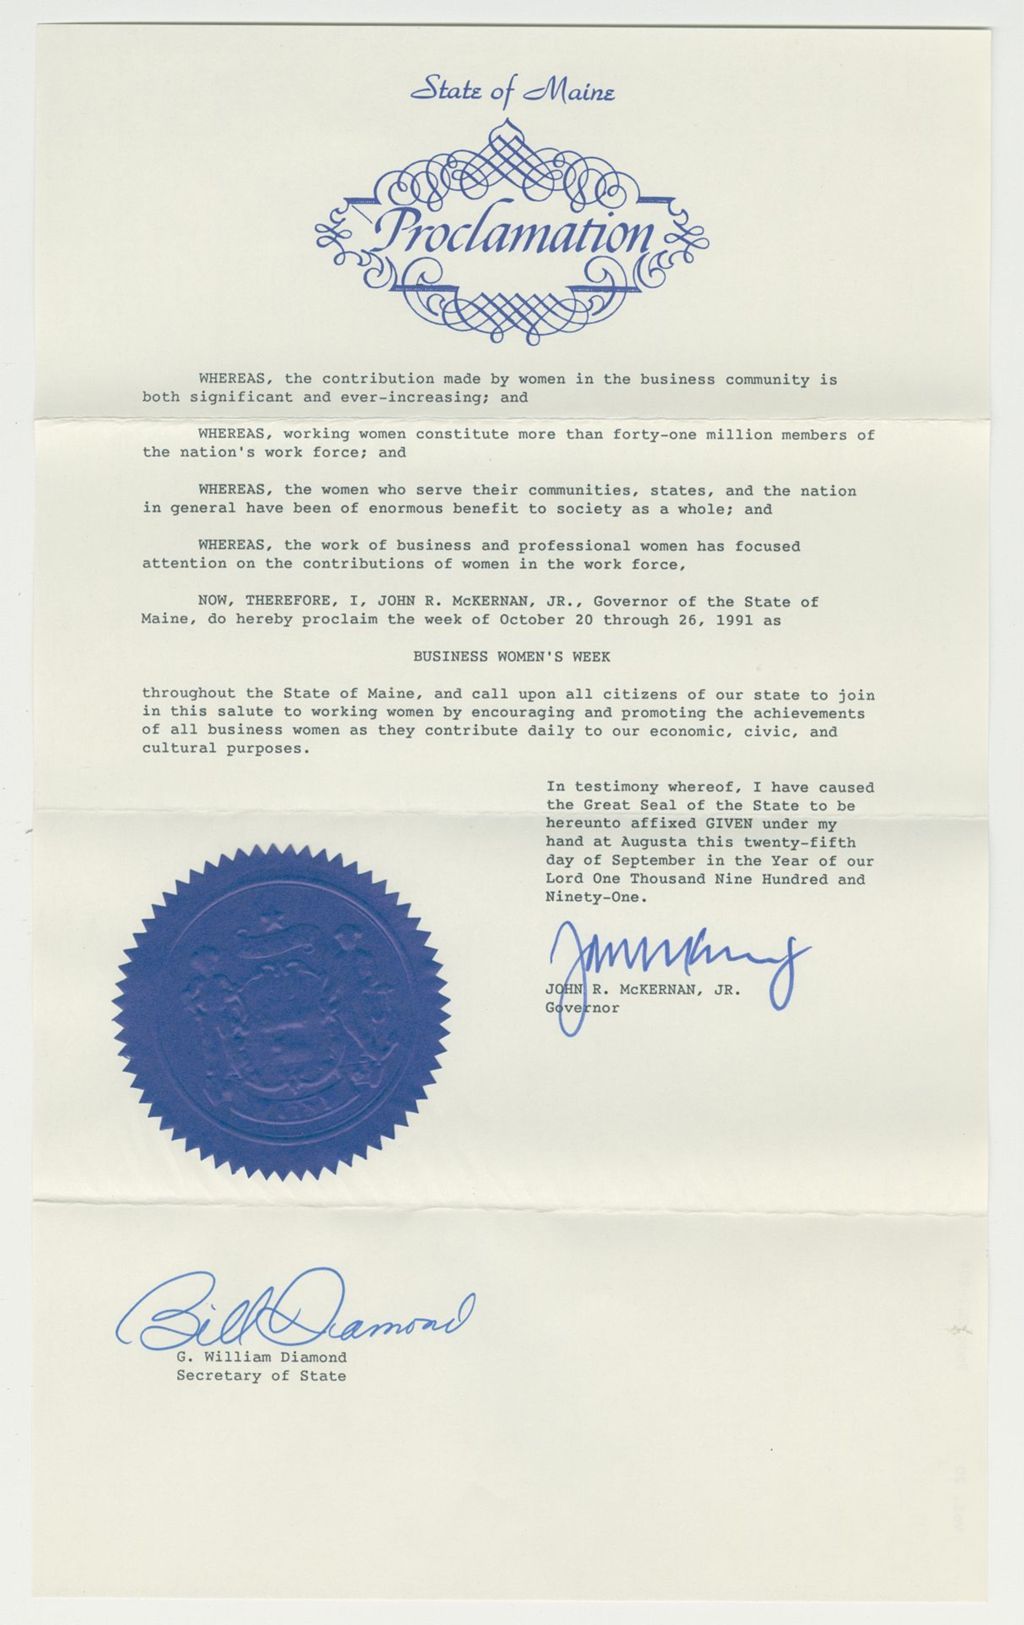 State of Maine
Proclamation
WHEREAS, the contribution made by women in the business community is
both significant and ever-increasing; and
WHEREAS, working women constitute more than forty-one million members of
the nation's work force; and
WHEREAS, the women who serve their communities, states, and the nation
in general have been of enormous benefit to society as a whole; and
WHEREAS, the work of business and professional women has focused
attention on the contributions of women in the work force,
NOW, THEREFORE, I, JOHN R. McKERNAN, JR., Governor of the State of
Maine, do hereby proclaim the week of October 20 through 26, 1991 as
BUSINESS WOMEN'S WEEK
throughout the State of Maine, and call upon all citizens of our state to join
in this salute to working women by encouraging and promoting the achievements
of all business women as they contribute daily to our economic, civic, and
cultural purposes.
In testimony whereof, I have caused
the Great Seal of the State to be
hereunto affixed GIVEN under my
hand at Augusta this twenty-fifth
day of September in the Year of our
Lord One Thousand Nine Hundred and
Ninety-One.
JOHN R. McKERNAN, JR.
Governor
Bill Diamond
G. William Diamond
Secretary of State